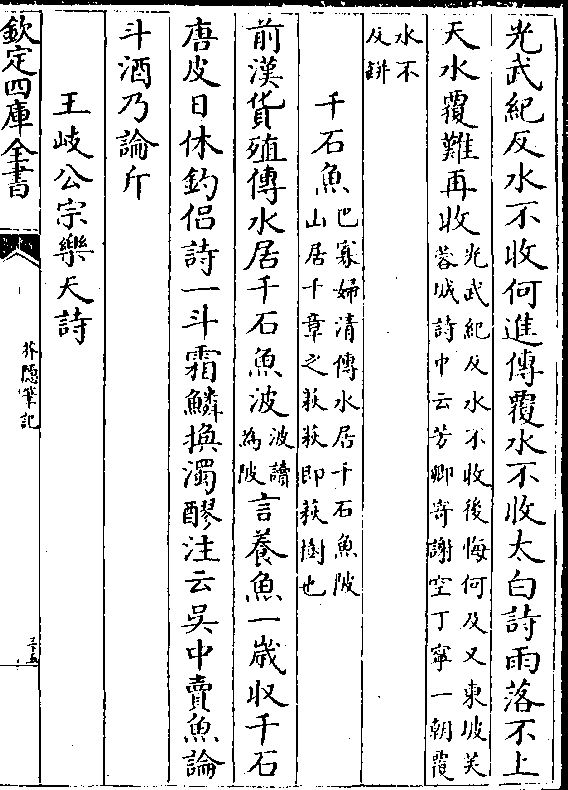 光武紀反水不收何進傳覆水不收太白詩雨落不上
天水覆難再收光武紀反水不收後悔何及又東坡芙
蓉城詩中云芳卿寄謝空丁寧一朝覆
水不
反缾
千石魚巴寡婦清傳水居千石魚陂
山居千章之萩萩即萩樹也
前漢貨殖傳水居千石魚波波讀
為陂言養魚一歲收千石
唐皮日休釣侣詩一斗霜鱗換濁醪注云吳中賣魚論
斗酒乃論斤
王岐公宗樂天詩
欽定四庫全書
芥隱筆記
三十五